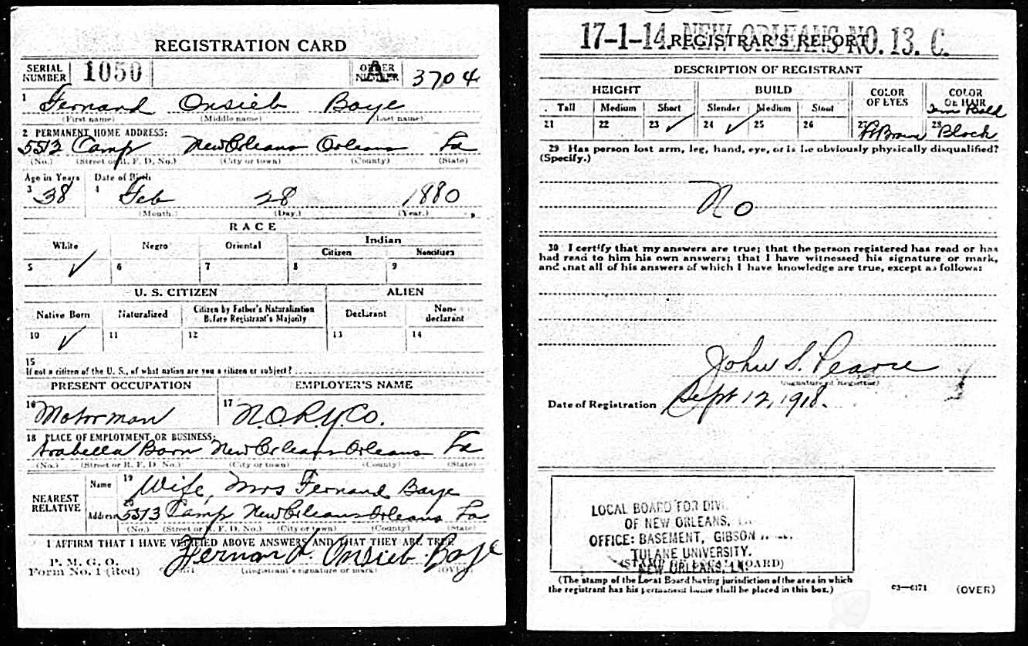 REGISTRATION CARD
SERIAL NUMBER 1050 ORDER NUMBER A 3704
1 Fernand Onsieb Baye
(First name) (Middle name) (Last name)
2 PERMANENT HOME ADDRESS:
5513 Camp New Orleans Orleans La
(No.) (Street or R. F. D. No.) (City or town) (County) (State)
Age in Years Date of Birth
3 38 4 Feb 28 1880
(Month.) (Day.) (Year.)
RACE
White Negro Oriental Indian
Citizen Noncitizen
5 ✓ 6 7 8 9
U. S. CITIZEN ALIEN
Native Born Naturalized Citizen by Father's Naturalization Before Registrant's Majority Declarant Non-declarant
10 ✓ 11 12 13 14
15
If not a citizen of the U. S., of what nation are you a citizen or subject?
PRESENT OCCUPATION EMPLOYER'S NAME
16 Motorman 17 N.O.RY.CO.
18 PLACE OF EMPLOYMENT OR BUSINESS:
Arabella Barn New Orleans Orleans La
(No.) (Street or R. F. D. No.) (City or town) (County) (State)
NEAREST RELATIVE
Name 19 Wife, Mrs Fernand Baye
Address 20 5513 Camp New Orleans Orleans La
(No.) (Street or R. F. D. No.) (City or town) (County) (State)
I AFFIRM THAT I HAVE VERIFIED ABOVE ANSWERS AND THAT THEY ARE TRUE
P. M. G. O.
Form No. 1 (Red) Fernand Onsieb Baye
(Registrant's signature or mark) (OVER)
17-1-14. NEW ORLEANS NO. 13. C.
REGISTRAR'S REPORT
DESCRIPTION OF REGISTRANT
HEIGHT BUILD COLOR OF EYES COLOR OF HAIR
Tall Medium Short Slender Medium Stout Bald
21 22 23 ✓ 24 ✓ 25 26 27 28 Black
29 Has person lost arm, leg, hand, eye, or is he obviously physically disqualified?
(Specify.)
No
30 I certify that my answers are true; that the person registered has read or has
had read to him his own answers; that I have witnessed his signature or mark,
and that all of his answers of which I have knowledge are true, except as follows:
John S. Pearce
(Signature of Registrar)
Date of Registration Sept 12, 1918.
LOCAL BOARD FOR DIV.
OF NEW ORLEANS,
OFFICE: BASEMENT, GIBSON
TULANE UNIVERSITY.
(STAMP OF LOCAL BOARD)
NEW ORLEANS, LA.
(The stamp of the Local Board having jurisdiction of the area in which
the registrant has his permanent home shall be placed in this box.)
03-6171 (OVER)